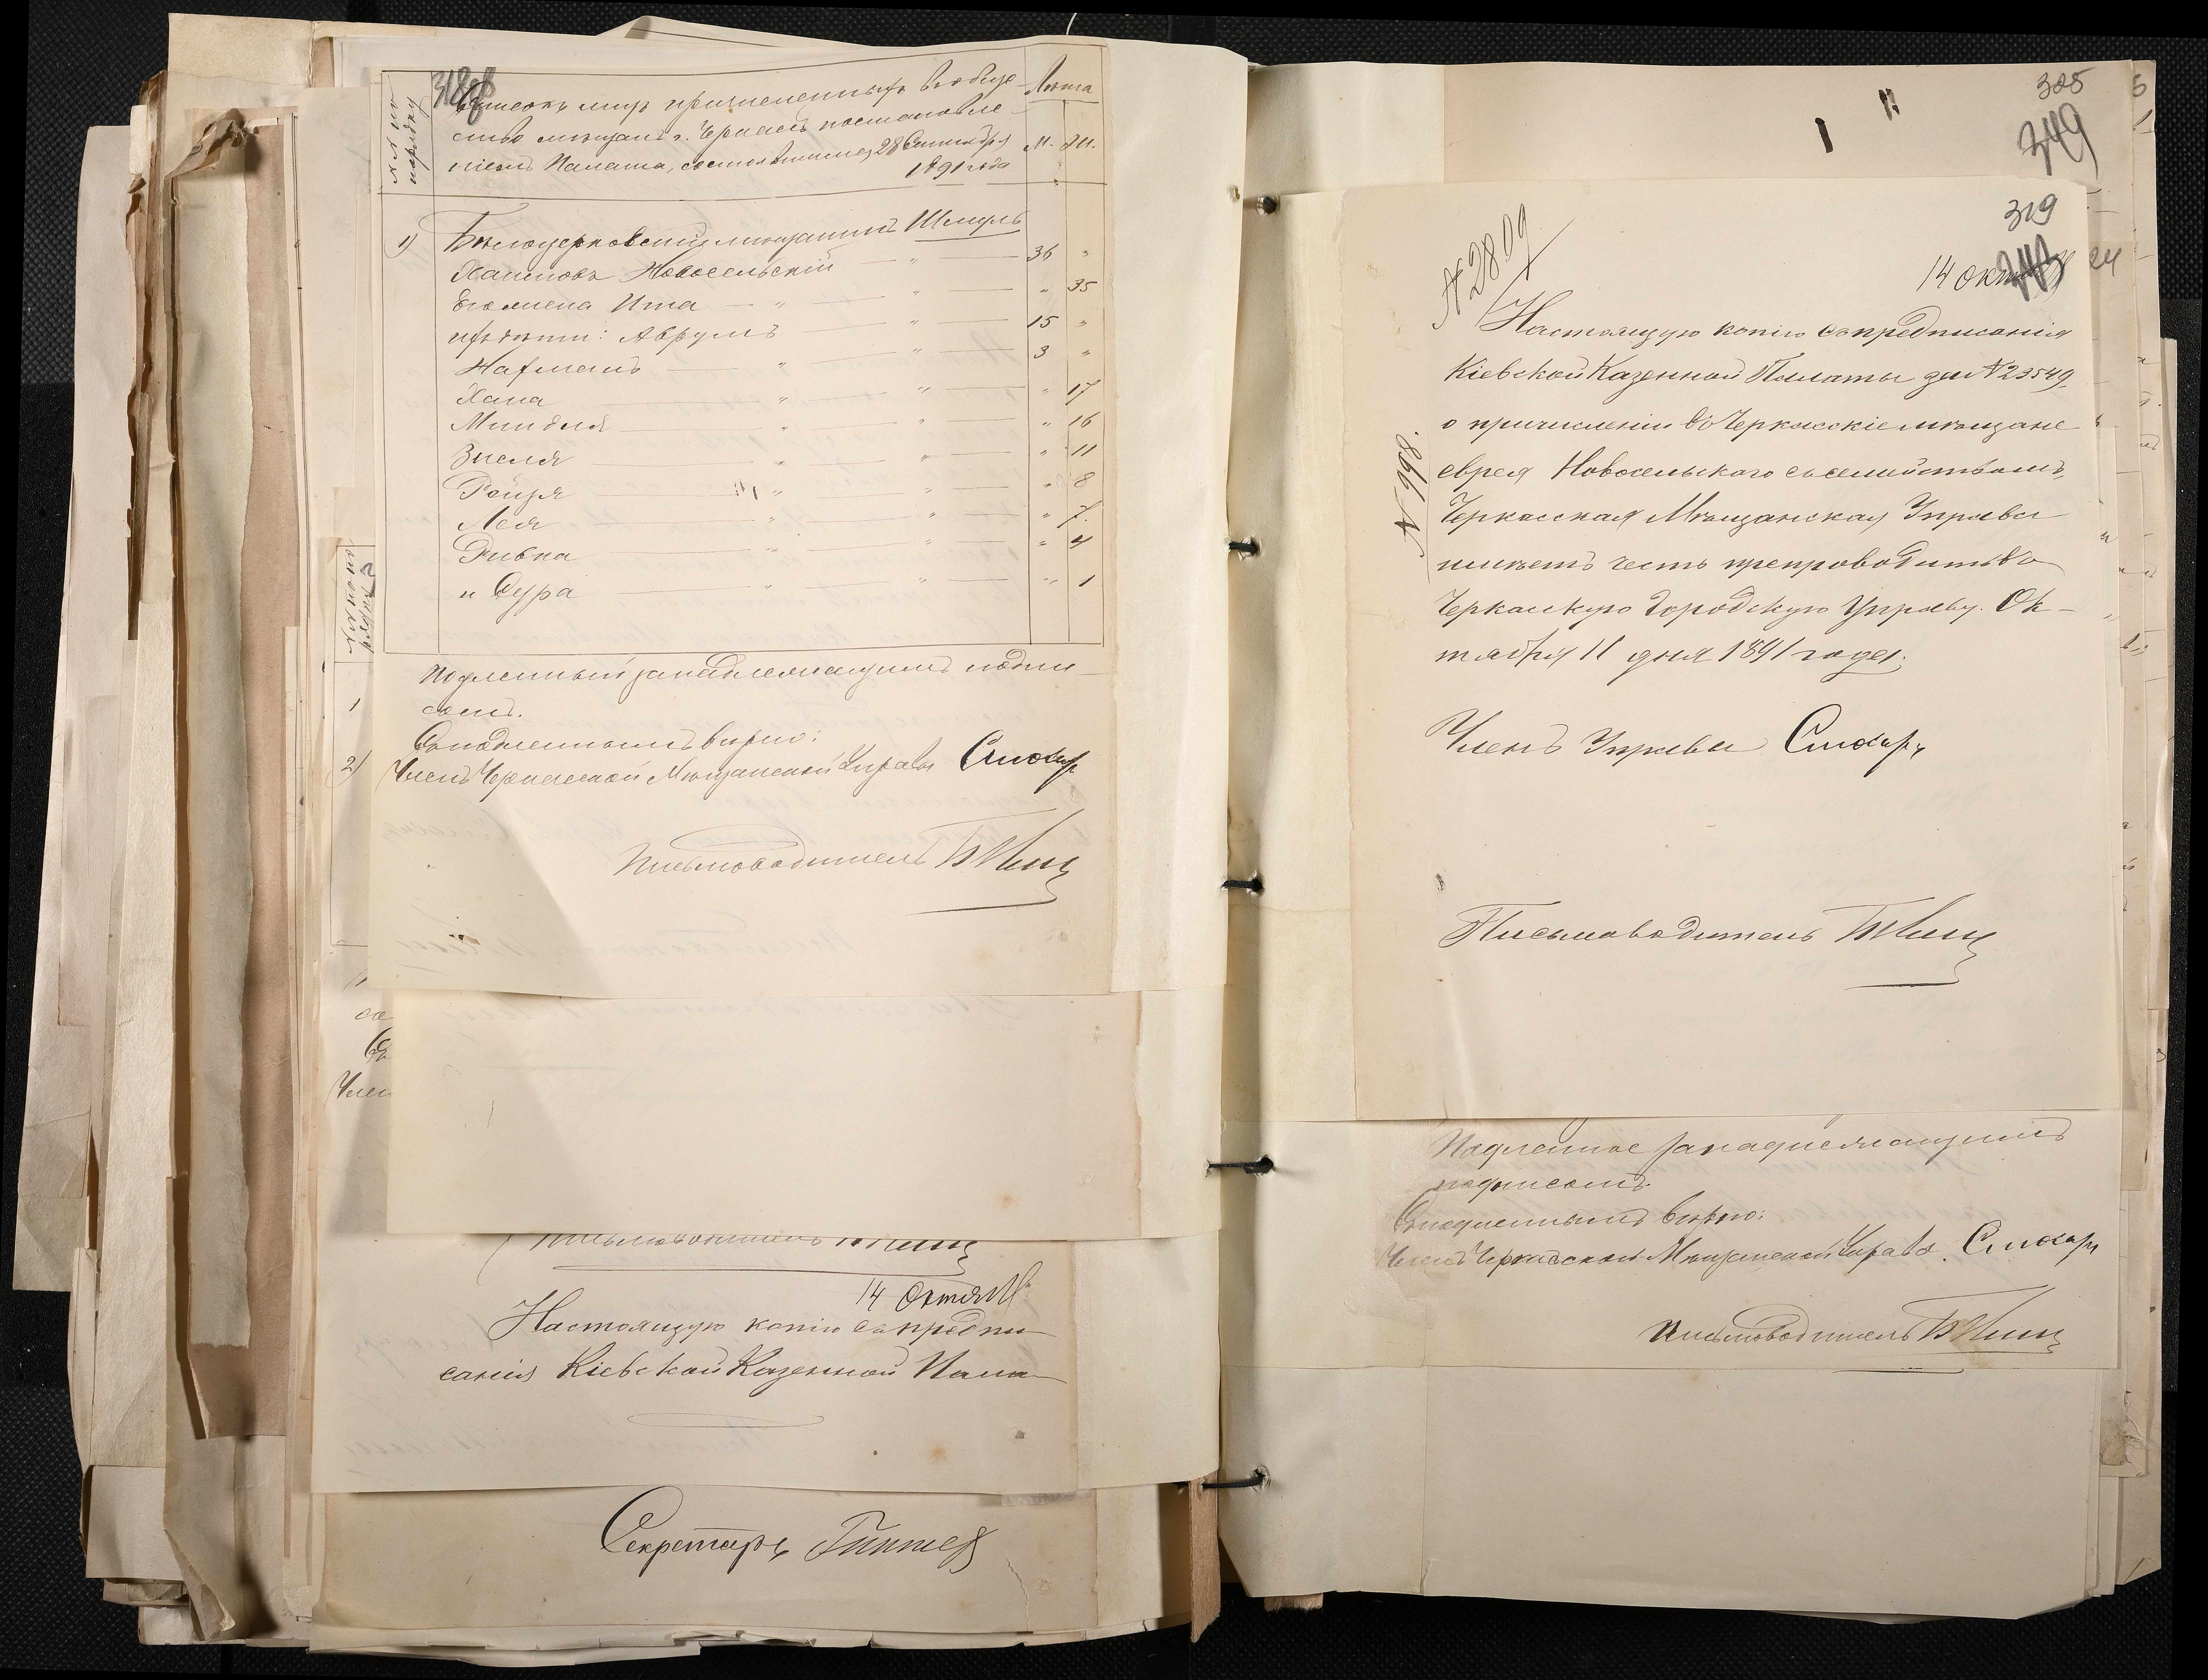 №№ по порядку
318об
Списокъ лицъ причисленныхъ въ обще-
ство мѣщанъ г. Черкасъ постановле-
ніемъ Палаты, состоявшимся 28 Сентября
1891 года
Лѣта
М. Ж.
1) Бѣлоцерковскій мѣщанинъ Шмуль
Хаимовъ Новосельскій — " — 36 "
Его жена Ита — " — " 35
ихъ дѣти: Аврумъ " — 15 "
Нахманъ — " — " — 3 "
Хана — " — " — " 17
Миндля — " — " — " 16
Зиеля — " — " — " 11
Рейзя — " — " — " 8
Лея — " — " — " 7.
Ривка — " — " — " 4
и Сура — " — " — " 1
Подлинный за надлежащимъ подпи-
сомъ.
Съ подлиннымъ вѣрно:
Членъ Черкасской Мѣщанской Управы
Письмоводитель
№№ по порядку
1
2)
Член
Письмоводитель
14 Октяб
Настоящую копію съ предпи-
санія Кіевской Казенной Пала-
Секретарь
325
349
319
№ 2809
14 Окт
Настоящую копію съ предписанія
Кіевской Казенной Палаты за №23549,
о причисленіи въ Черкасскіе мѣщане
еврея Новосельского съ семействомъ,
Черкасская Мѣщанская Управа
имѣетъ честь препроводить въ
Черкасскую Городскую Управу. Ок-
тября 11 дня 1891 года.
№ 998.
Членъ Управы
Письмоводитель
Подлинное за надлежащимъ
подписомъ.
Съ подлиннымъ вѣрно:
Членъ Черкасской Мѣщанской Управы
Письмоводитель